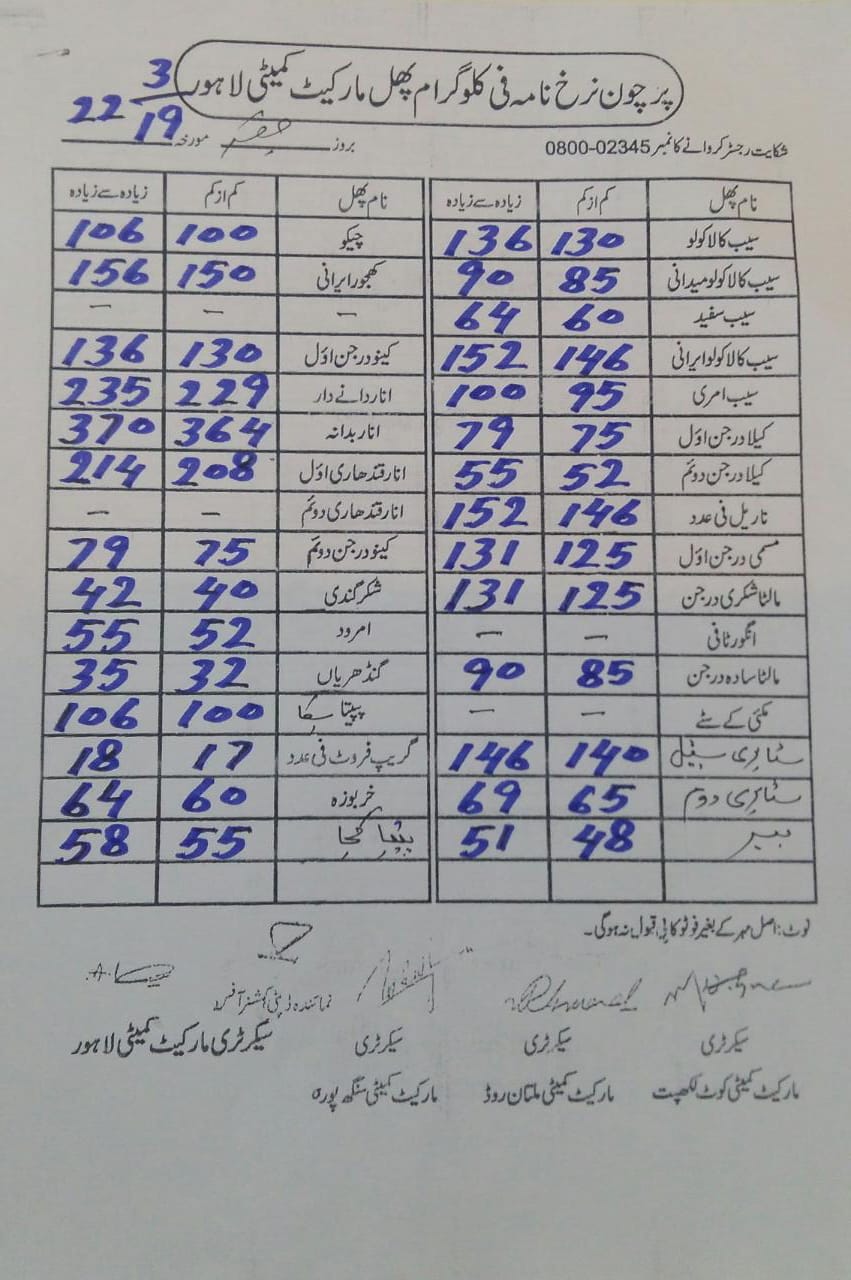 پرچون نرخ نامہ فی کلوگرام پھل مارکیٹ کمیٹی لاہور
22 3/19
شکایت رجسٹر کروانے کا نمبر 0800-02345 بروز جمعہ مورخہ
نام پھل کم از کم زیادہ سے زیادہ نام پھل کم از کم زیادہ سے زیادہ
سیب کالا کولو 130 136 چیکو 100 106
سیب کالا کولو میدانی 85 90 کھجور ایرانی 150 156
سیب سفید 60 64 – – –
سیب کالا کولو ایرانی 146 152 کینو درجن اوّل 130 136
سیب امری 95 100 انار دانے دار 229 235
کیلا درجن اوّل 75 79 انار بدانہ 364 370
کیلا درجن دوئم 52 55 انار قندھاری اوّل 208 214
ناریل فی عدد 146 152 انار قندھاری دوئم – –
مسمی درجن اوّل 125 131 کینو درجن دوئم 75 79
مالٹا شکری درجن 125 131 شکر گندی 40 42
انگور ٹافی – – امرود 52 55
مالٹا سادہ درجن 85 90 گنڈھریاں 32 35
مکئی کے سٹے – – پپیتا پکا 100 106
سٹابری سپیشل 140 146 گریپ فروٹ فی عدد 17 18
سٹابری دوم 65 69 خربوزہ 60 64
بیر 48 51 پپیتا کچا 55 58
نوٹ: اصل مہر کے بغیر فوٹو کاپی قبول نہ ہوگی۔
نمائندہ ڈپٹی کمشنر آفس
سیکرٹری سیکرٹری سیکرٹری سیکرٹری مارکیٹ کمیٹی لاہور
مارکیٹ کمیٹی کوٹ لکھپت مارکیٹ کمیٹی ملتان روڈ مارکیٹ کمیٹی سنگھ پورہ